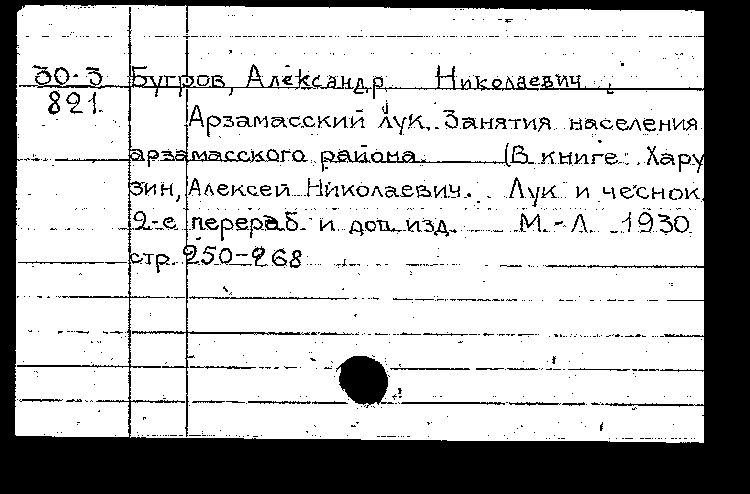 30-3 Бугров, Александр Николаевич.
821
Арзамасский лук. Занятия населения
арзамасского района. (В книге: Хару
зин, Алексей Николаевич. Лук и чеснок.
2-е перераб. и доп. изд. М.-Л. 1930
стр. 250-268